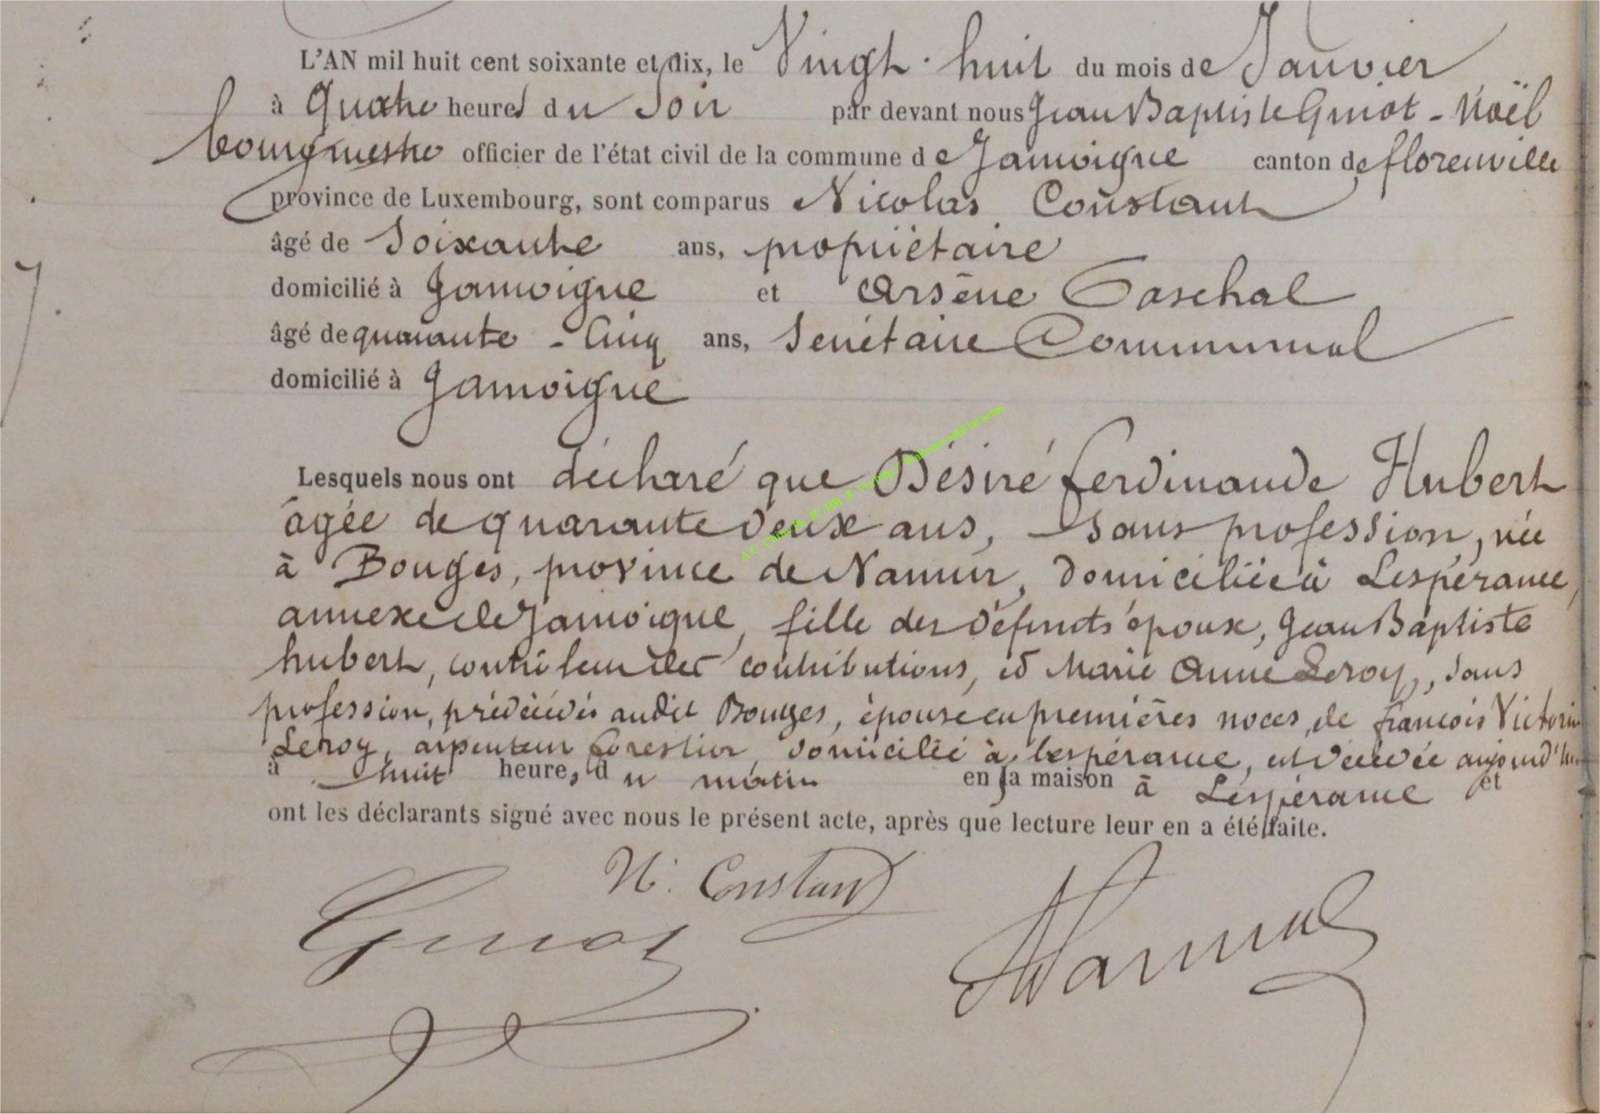 L'AN mil huit cent soixante et dix, le Vingt-huit du mois de Janvier
à Quatre heures du Soir par devant nous Jean Baptiste Guiot-Noël
bourgmestre officier de l'état civil de la commune de Jamoigne canton de florenville
province de Luxembourg, sont comparus Nicolas Constant
âgé de Soixante ans, propriétaire
domicilié à Jamoigne et Arsène
âgé de quarante-Cinq ans, Secrétaire Communal
domicilié à Jamoigne
7.
Lesquels nous ont déclaré que Désiré ferdinande Hubert
âgée de quarante deux ans, Sans profession, née
à Bouges, province de Namur, domiciliée à Lespérance,
annexe de Jamoigne, fille des défunts époux, Jean Baptiste
hubert, contrôleur des contributions, et Marie Anne Leroy, sans
profession, prédécédés audit Bouges, épouse en premières noces, de françois Victorin
Leroy, arpenteur forestier domicilié à lespérance, est décédée aujourd'hui
à huit heures du matin en sa maison à Lespérance et
ont les déclarants signé avec nous le présent acte, après que lecture leur en a été faite.
N. Constant
Guiot